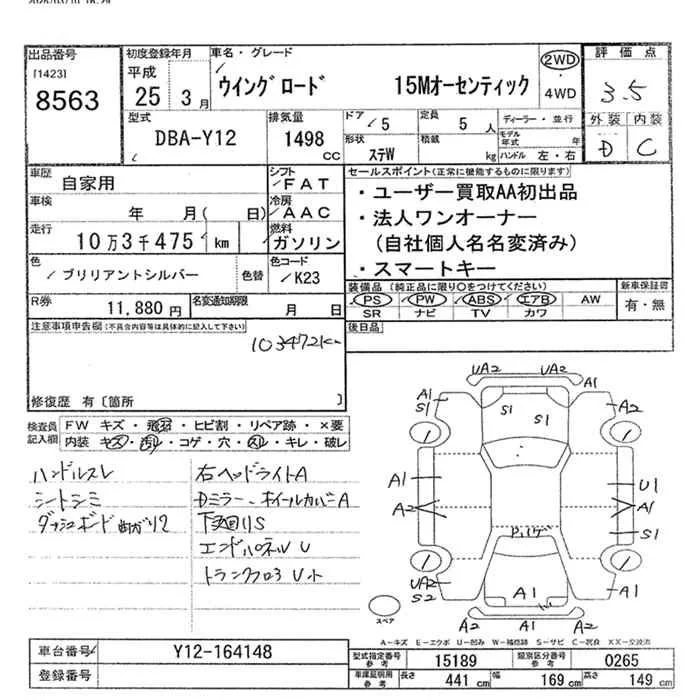 出品番号
[1423]
8563
初度登録年月
平成
25 3月
車名・グレード
ウイングロード 15Mオーセンティック
2WD
・
4WD
評価点
3.5
外装 内装
D C
型式
DBA-Y12
排気量
1498
CC
ドア 5
定員 5人
形状
ステW
積載 kg
ディーラー・並行
モデル年式 年
ハンドル 左・右
車歴
自家用
シフト
FAT
セールスポイント(正常に機能するものに限ります)
・ユーザー買取AA初出品
・法人ワンオーナー
(自社個人名名変済み)
・スマートキー
車検
年 月( 日)
冷房
AAC
走行
10万3千475 km
燃料
ガソリン
色
ブリリアントシルバー
色替
色コード
K23
装備品(純正品に限り○をつけてください)
PS PW ABS エアB AW
SR ナビ TV カワ
新車保証書
有・無
R券
11,880円
名変通知期限
月 日
後日品
注意事項申告欄(不具合内容等は具体的に記入して下さい)
103472km
修復歴 有〔箇所 〕
検査員記入欄
FW キズ・飛石・ヒビ割・リペア跡・×要
内装 キズ・汚れ・コゲ・穴・スレ・キレ・破レ
ハンドルスレ
シートシミ
右ヘッドライトA
Dミラー、ホイールカバーA
下回りS
エンドパネルU
UA2 UA2
A1
A1
S1
S1
S1
A2
A1
A2
U1
A1
S1
UA2
S2
A1
A1
A2
A1
A2
スペア
A-キズ E-エクボ U-凹み W-補修跡 S-サビ C-腐食 XX-交換済
車台番号
Y12-164148
登録番号
型式指定番号
参考
15189
類別区分番号
参考
0265
車庫証明用
参考
長さ 441 cm
幅 169 cm
高さ 149 cm